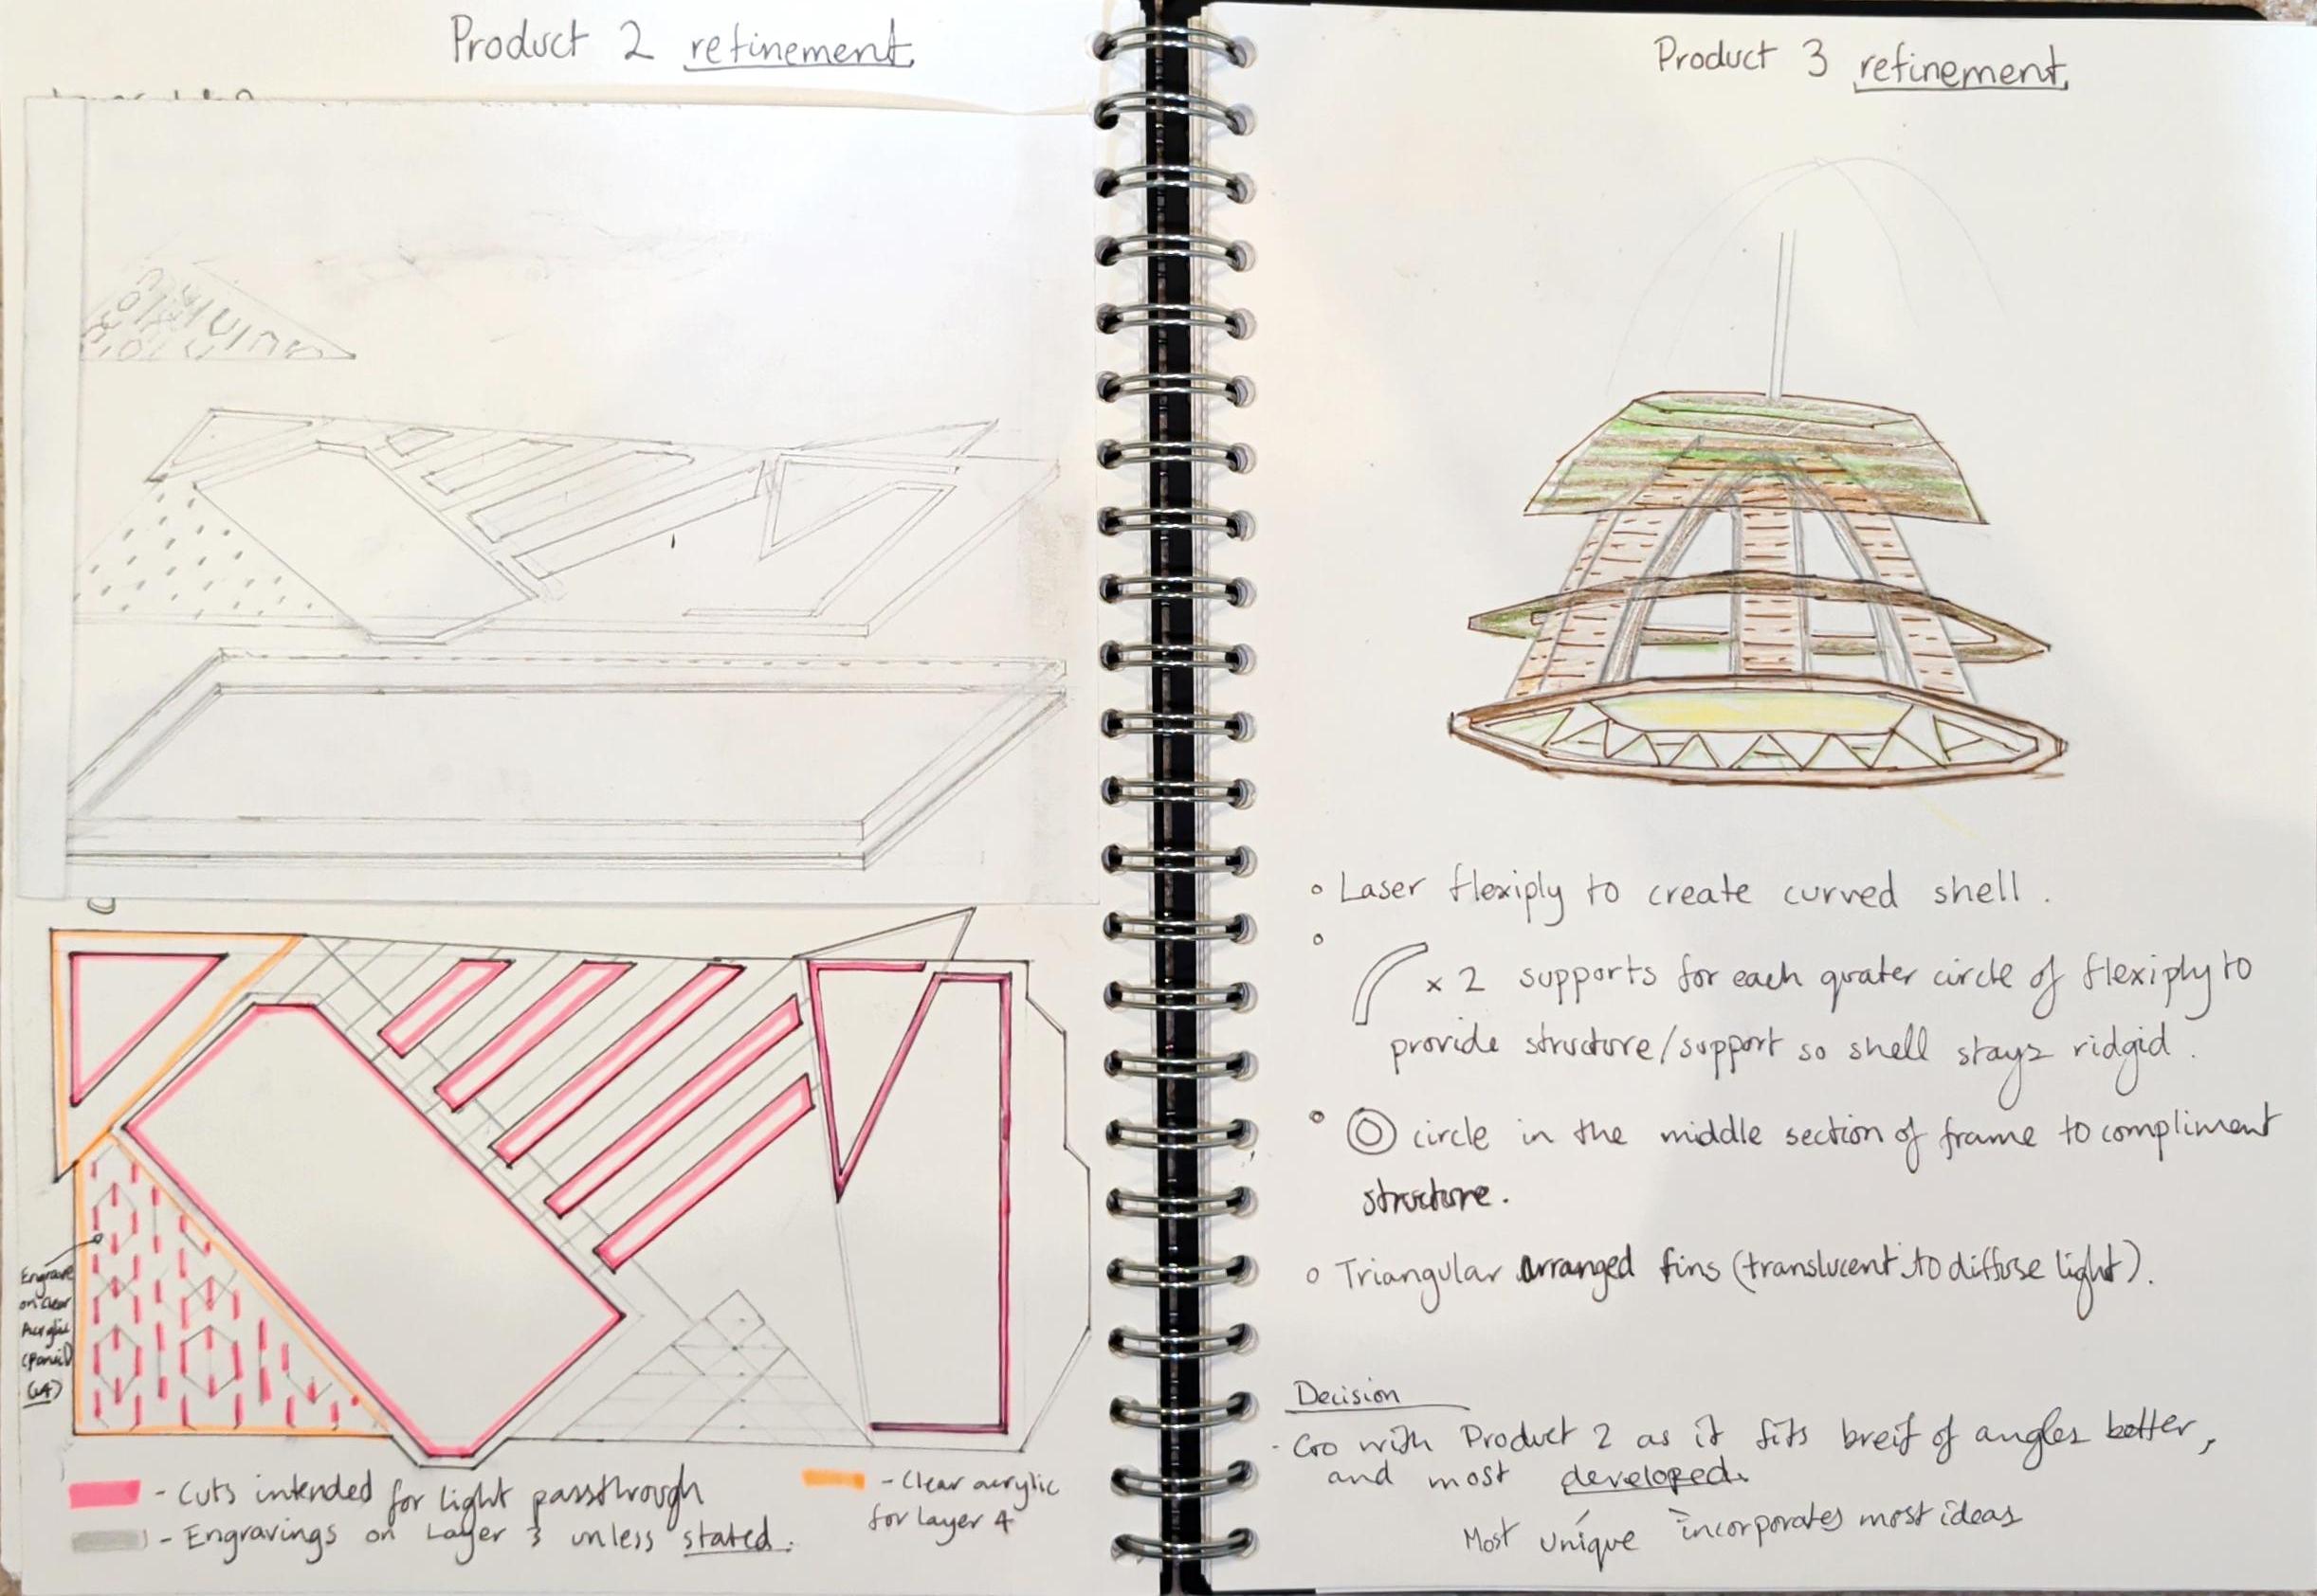 Product 2 refinement.
Engrave
on clear
Acrylic
(Panel)
(L4)
- Cuts intended for light passthrough
- Engravings on Layer 3 unless stated.
- Clear acrylic
for layer 4
Product 3 refinement.
Laser flexiply to create curved shell.
x 2 supports for each quater circle of flexiply to
provide structure/support so shell stays ridgid.
circle in the middle section of frame to compliment
structure.
Triangular arranged fins (translucent to diffuse light).
Decision
- Go with Product 2 as it fits breif of angles better,
and most developed.
Most unique incorporates most ideas